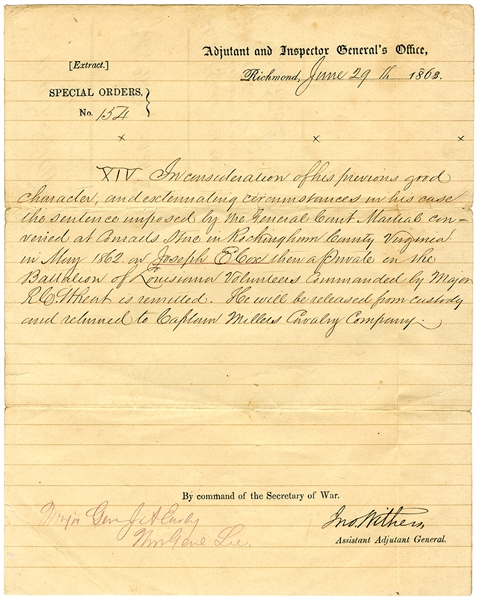 Adjutant and Inspector General's Office,
[Extract.]
Richmond, June 29th 1863.
SPECIAL ORDERS, }
No. 154
x x x
XIV In consideration of his previous good
character, and extenuating circumstances in his case
the sentence imposed by the General Court Martial con-
vened at Conrads Store in Rockingham County Virginia
in May 1862 on Joseph E Cox then a private in the
Battalion of Louisiana Volunteers Commanded by Major
R C Wheat is remitted. He will be released from custody
and returned to Captain Millers Cavalry Company.
By command of the Secretary of War.
Major Genl J A Early
Thro Genl Lee.
Jno. Withers,
Assistant Adjutant General.